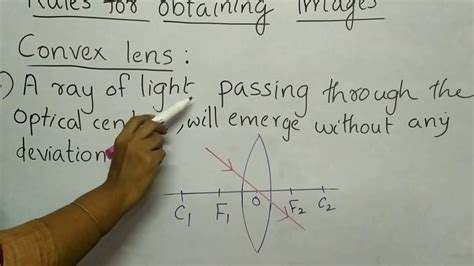 Rules for obtaining Images
Convex lens :
) A ray of light passing through the
Optical cent , will emerge without any
deviation
O
C1 F1 F2 C2